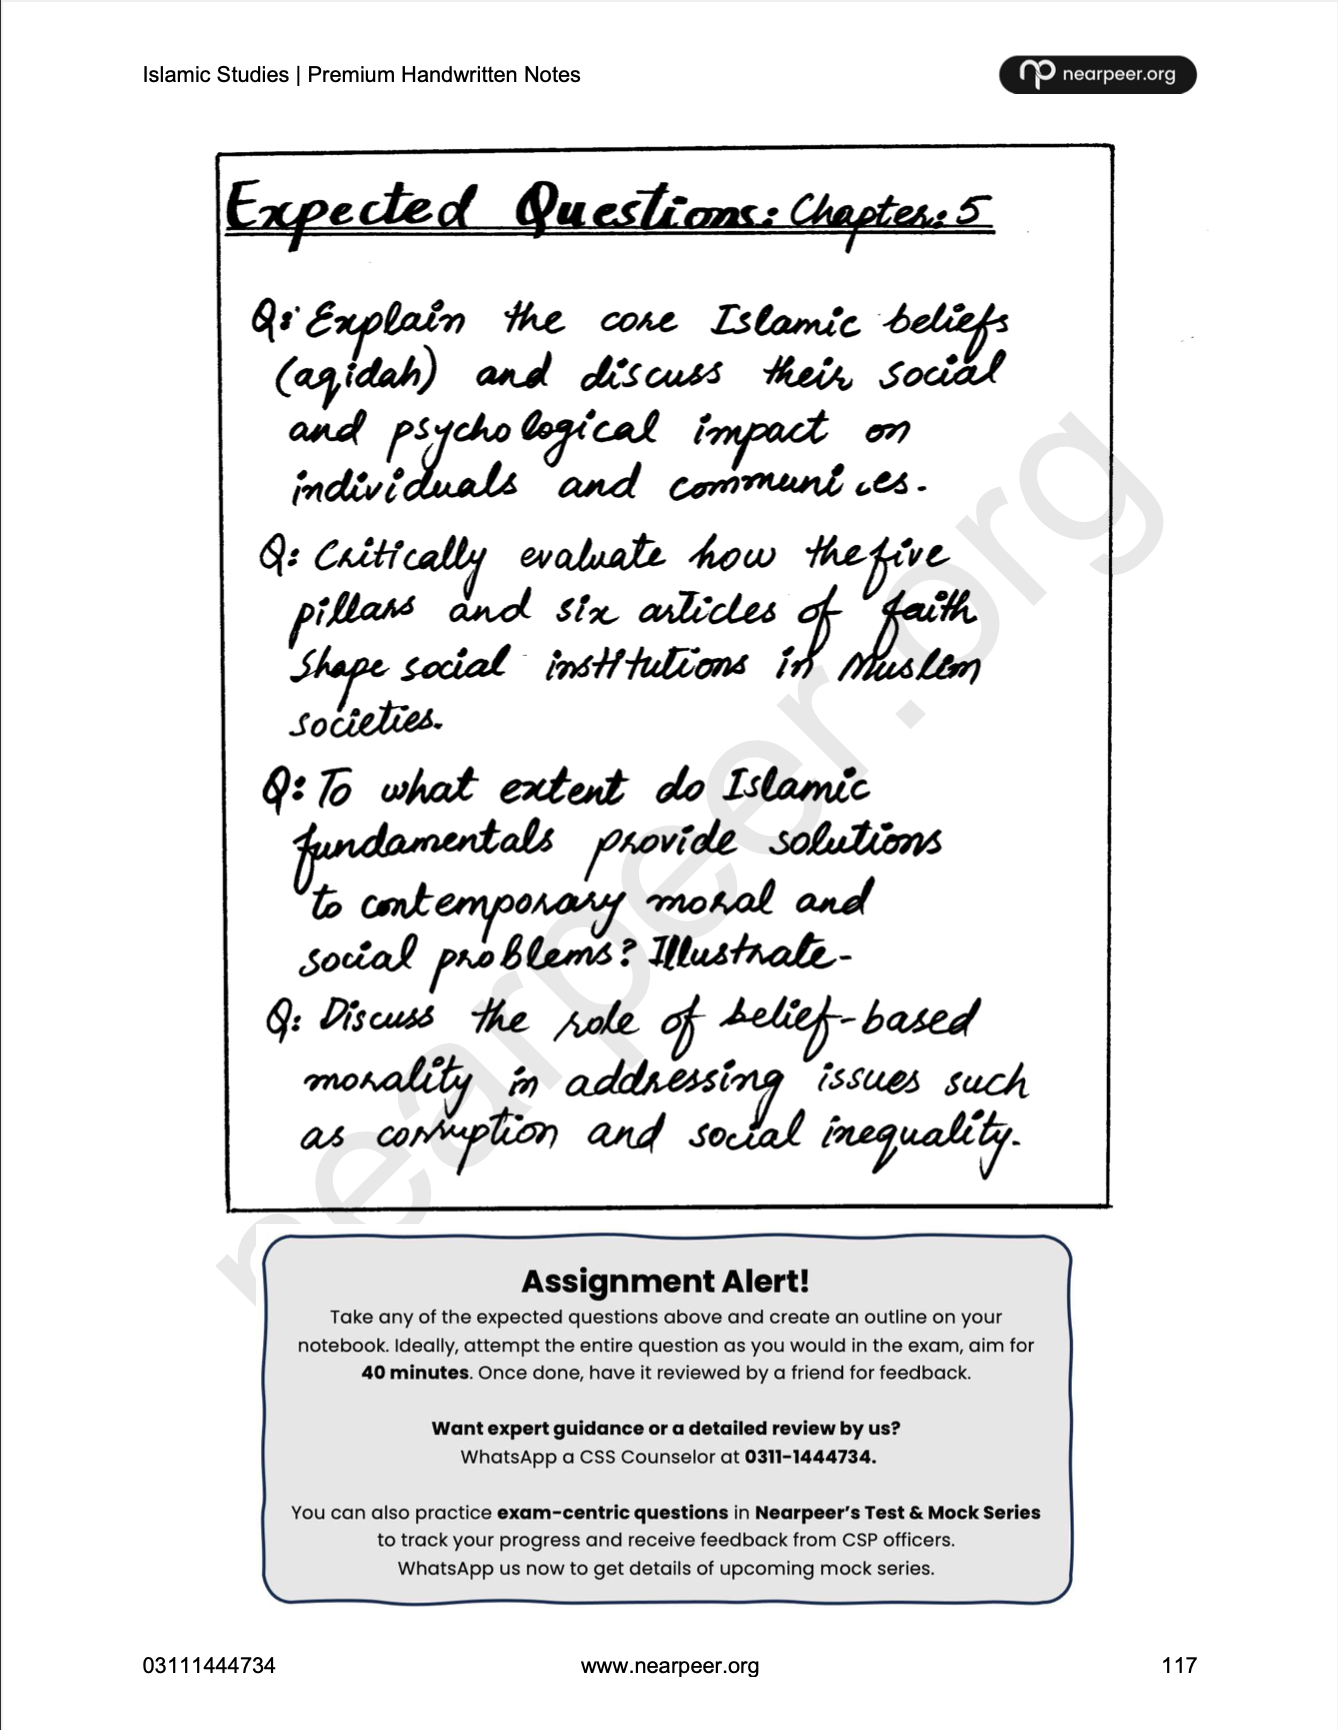 Islamic Studies | Premium Handwritten Notes
nearpeer.org
Expected Questions: Chapter: 5
Q: Explain the core Islamic beliefs
(aqidah) and discuss their social
and psychological impact on
individuals and
Q: Critically evaluate how the five
pillars and six articles of faith
Shape social institutions in Muslim
societies.
Q: To what extent do Islamic
fundamentals provide solutions
to contemporary moral and
social problems? Illustrate-
Q: Discuss the role of belief-based
morality in addressing issues such
as corruption and social inequality.
nearpeer.org
Assignment Alert!
Take any of the expected questions above and create an outline on your
notebook. Ideally, attempt the entire question as you would in the exam, aim for
40 minutes. Once done, have it reviewed by a friend for feedback.
Want expert guidance or a detailed review by us?
WhatsApp a CSS Counselor at 0311-1444734.
You can also practice exam-centric questions in Nearpeer's Test & Mock Series
to track your progress and receive feedback from CSP officers.
WhatsApp us now to get details of upcoming mock series.
03111444734
www.nearpeer.org
117